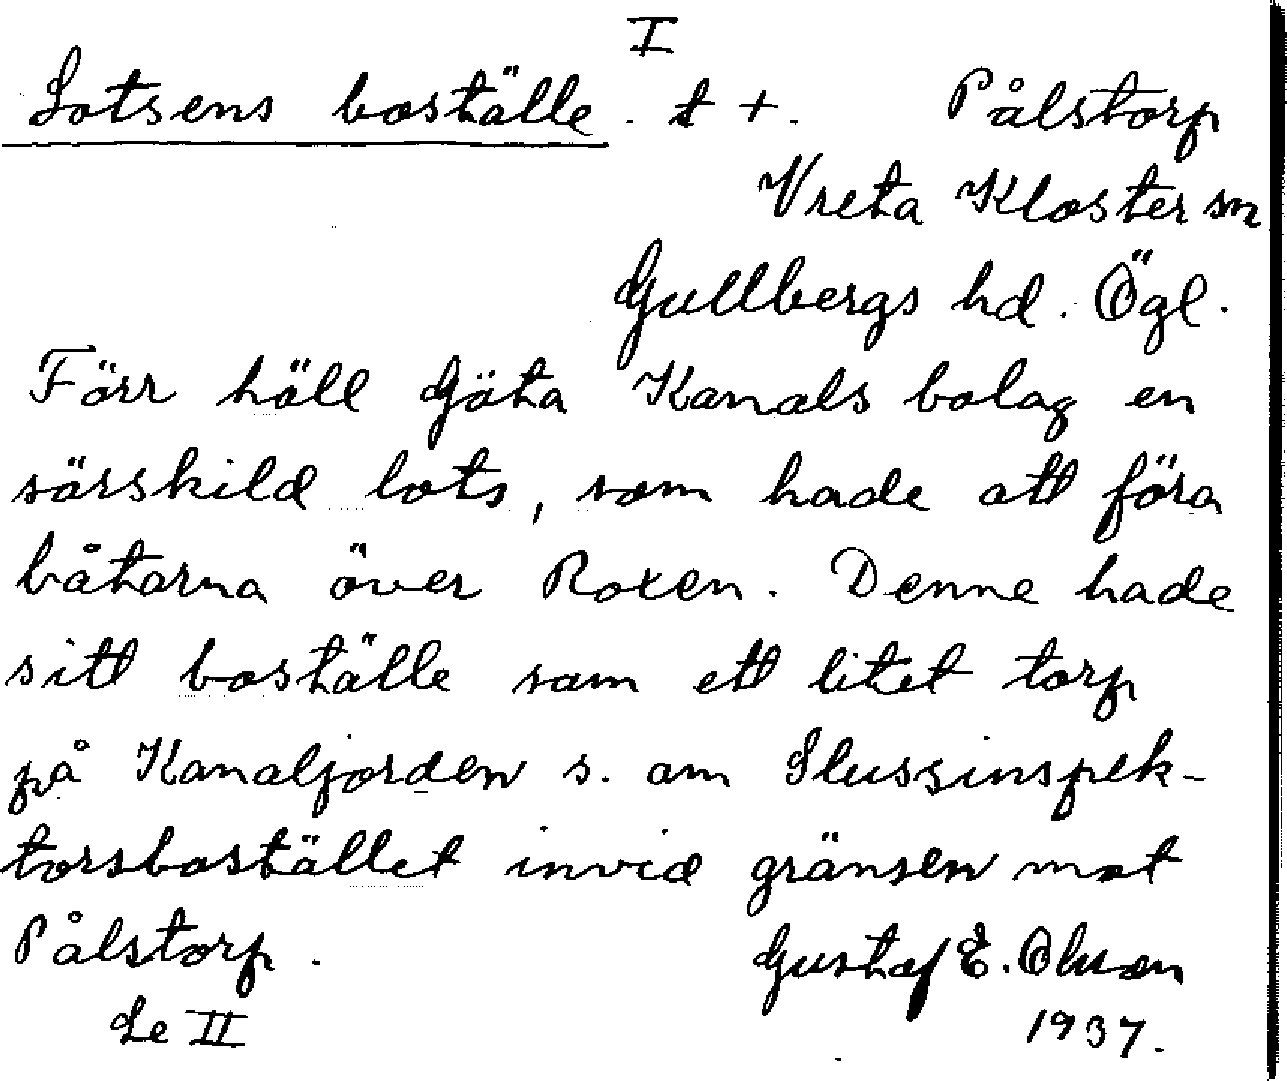 I
Lotsens boställe. t +. Pålstorp
Vreta Kloster sn
Gullbergs hd. Ögl.
Förr höll Göta Kanals bolag en
särskild lots, som hade att föra
båtarna över Roxen. Denne hade
sitt boställe som ett litet torp
på Kanaljorden s. om Slussinspek-
torsbostället invid gränsen mot
Pålstorp.
Gustaf E. Olsson
Se II
1937.